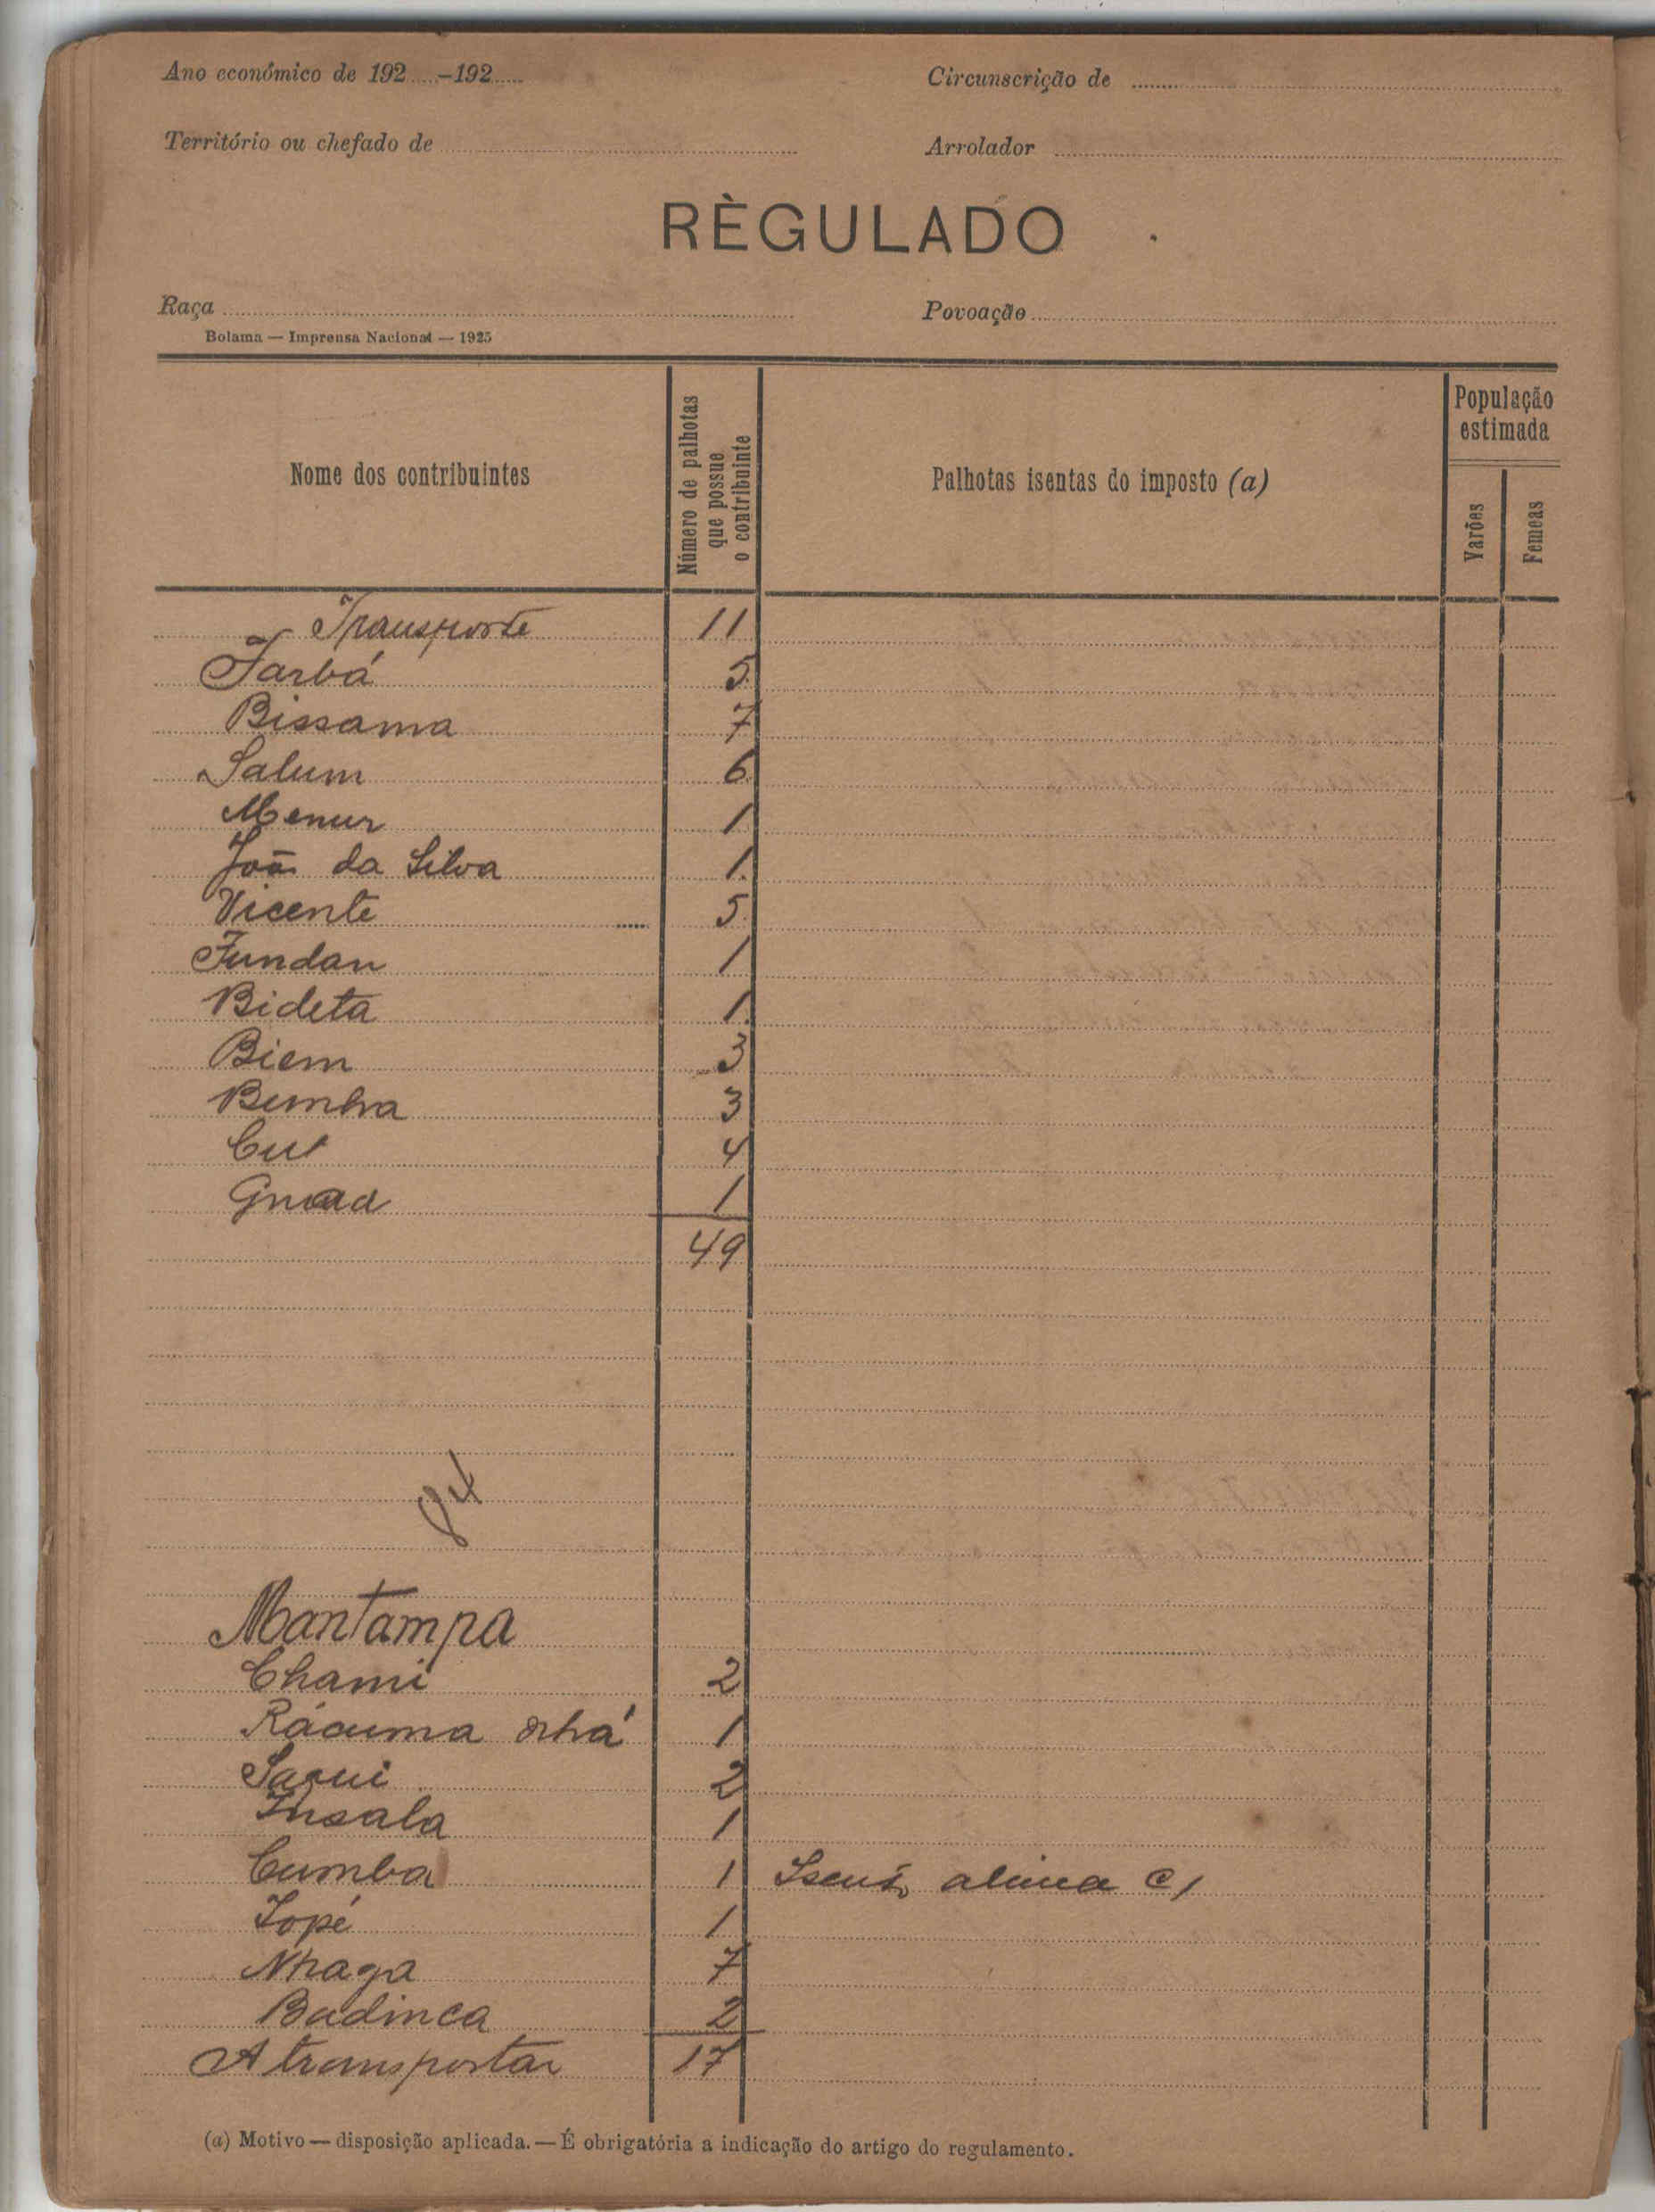 Ano económico de 192.....-192.....
Circunscrição de
Território ou chefado de
Arrolador
RÈGULADO
Raça
Povoação
Bolama — Imprensa Nacional — 1925
Nome dos contribuintes
Número de palhotas que possue o contribuinte
Palhotas isentas do imposto (a)
População estimada
Varões
Femeas
Transporte 11
Farbá 5
Bissama 7
Salum 6
Menur 1
João da Silva 1
Vicente 5
Fundan 1
Bideta 1
Biem 3
Bumba 3
Cut 4
Gnaad 1
49
Mantampa
Chami 2
Rácuma nhá 1
Saqui 2
Insala 1
Cumba 1 Isento alinea c/
Iopé 1
Nhaga 7
Badinca 2
A transportar 17
(a) Motivo — disposição aplicada. — É obrigatória a indicação do artigo do regulamento.